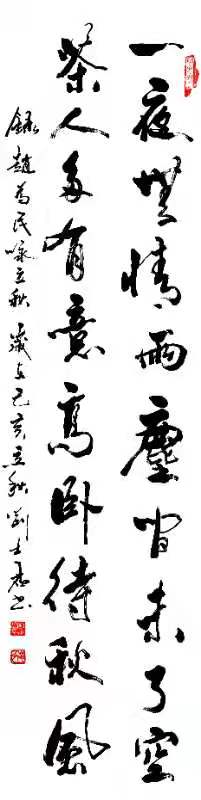 一夜無情雨塵留未了空
茶人多有意高卧待秋風
錄趙為民咏立秋 歲在己亥立秋 劉士君書